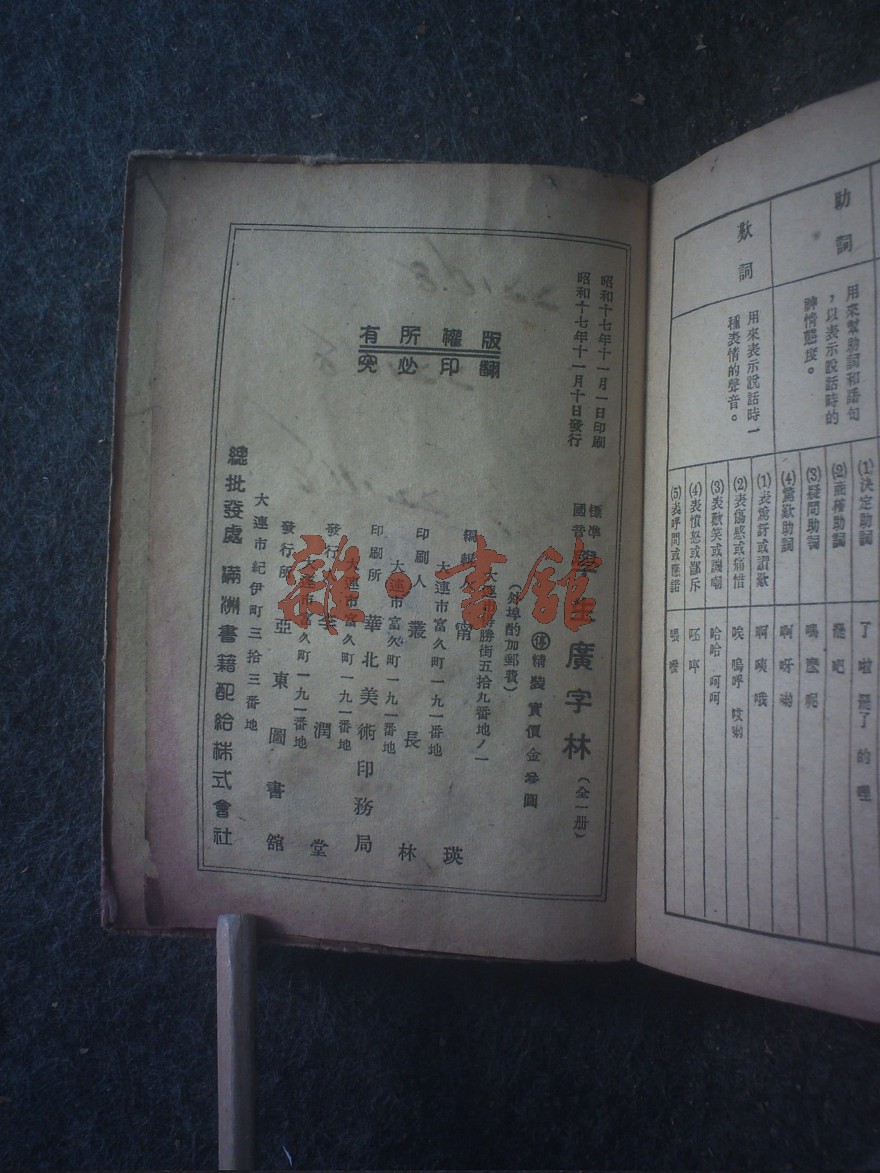 助詞
用來幫助詞和語句
，以表示說話時的
神情態度。
(1)決定助詞　了　啦　罷了　的　哩
(2)商榷助詞　罷　吧
(3)疑問助詞　嗎　麼　呢
(4)驚歎助詞　啊　呀　喲
歎詞
用來表示說話時一
種表情的聲音。
(1)表驚訝或讚歎　啊　咦　哦
(2)表傷感或痛惜　唉　嗚呼　哎喲
(3)表歡笑或譏嘲　哈哈　呵呵
(4)表憤怒或鄙斥　呸　哼
(5)表呼問或應諾　喂　噯
昭和十七年十一月一日印刷
昭和十七年十一月十日發行
版權所有
翻印必究
標準
國音
學生廣字林（全一册）
停精裝實價金參圓
（外埠酌加郵費）
大連市勝街五拾九番地ノ一
編輯人 甯 瑛
大連市富久町一九一番地
印刷人 叢長林
大連市富久町一九一番地
印刷所 華北美術印務局
大連市富久町一九一番地
發行人 李潤堂
大連市富久町一九一番地
發行所 亞東圖書館
大連市紀伊町三拾三番地
總批發處 滿洲書籍配給株式會社
雜·書館